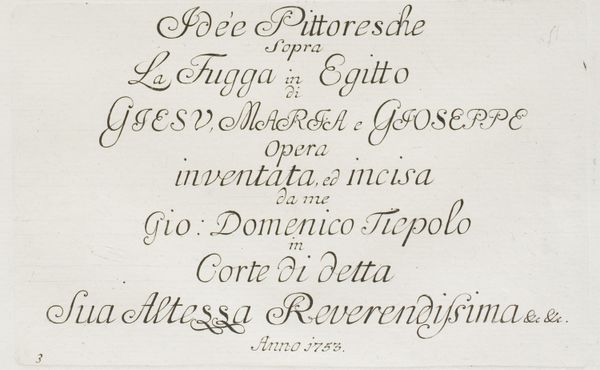 Idée Pittoresche
Sopra
La Fugga in Egitto
di
GIESV, MARIA e GIOSEPPE
Opera
inventata, ed incisa
da me
Gio: Domenico Tiepolo
in
Corte di detta
Sua Altessa Reverendissima &c &c.
Anno 1753.
3